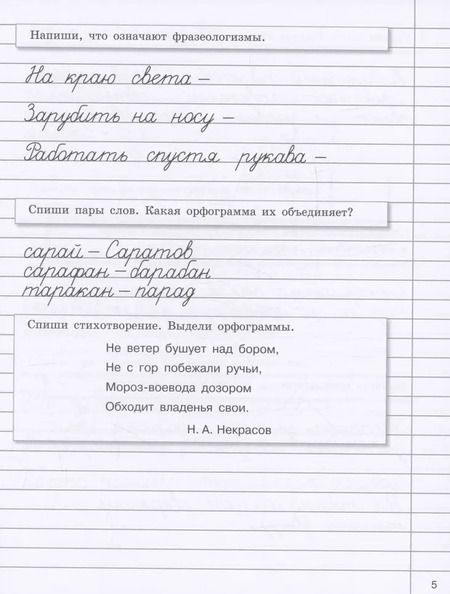 Напиши, что означают фразеологизмы.
На краю света –
Зарубить на носу –
Работать спустя рукава –
Спиши пары слов. Какая орфограмма их объединяет?
сарай – Саратов
сарафан – барабан
таракан – парад
Спиши стихотворение. Выдели орфограммы.
Не ветер бушует над бором,
Не с гор побежали ручьи,
Мороз-воевода дозором
Обходит владенья свои.
Н. А. Некрасов
5